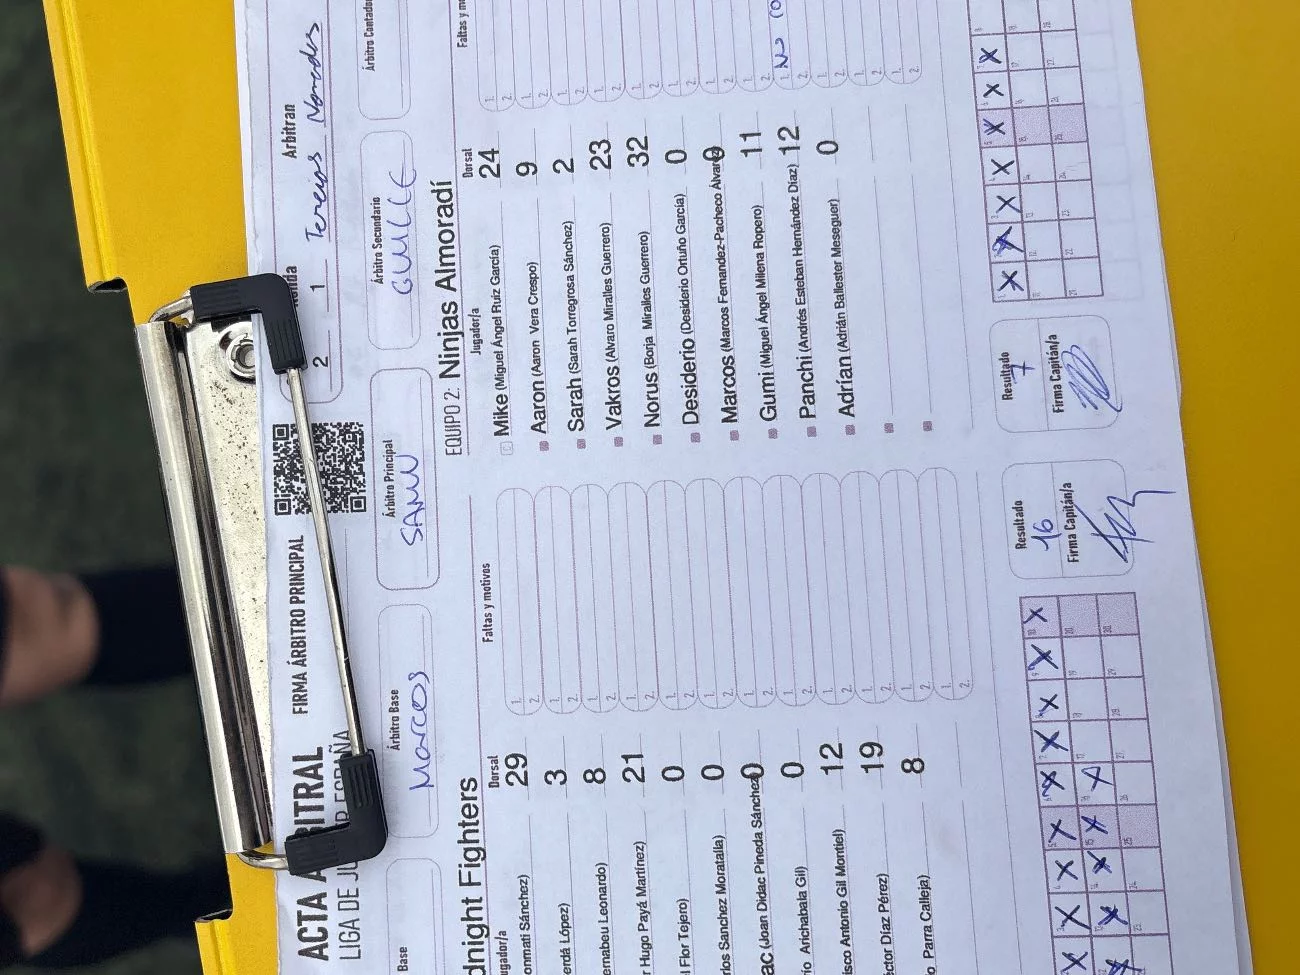 ACTA
LIGA DE
FIRMA ÁRBITRO PRINCIPAL
2 1
Arbitran
Tercios Morados
Base
Árbitro Base
Marcos
Árbitro Principal
SAMU
Árbitro Secundario
GUILLE
dnight Fighters
Dorsal
Faltas y motivos
onmatí Sánchez) 29
erdá López) 3
ernabeu Leonardo) 8
r Hugo Payá Martínez) 21
l Flor Tejero) 0
rlos Sanchez Moratalla) 0
ac (Joan Didac Pineda Sánchez) 0
río Arichabala Gil) 0
isco Antonio Gil Montiel) 12
éctor Díaz Pérez) 19
o Parra Calleja) 8
Resultado
16
Firma Capitán/a
EQUIPO 2: Ninjas Almoradí
Jugador/a Dorsal
Mike (Miguel Ángel Ruiz García) 24
Aaron (Aaron Vera Crespo) 9
Sarah (Sarah Torregrosa Sánchez) 2
Vakros (Alvaro Miralles Guerrero) 23
Norus (Borja Miralles Guerrero) 32
Desiderio (Desiderio Ortuño García) 0
Marcos (Marcos Fernandez-Pacheco 0
Gumi (Miguel Ángel Milena Ropero) 11
Panchi (Andrés Esteban Hernández Díaz) 12
Adrían (Adrián Ballester Meseguer) 0
Resultado
7
Firma Capitán/a